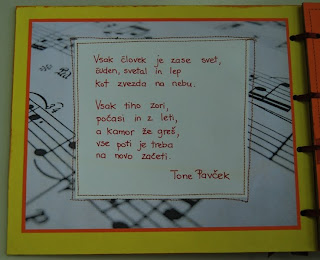 Vsak človek je zase svet,
čuden, svetal in lep
kot zvezda na nebu.
Vsak tiho zori,
počasi in z leti,
a kamor že greš,
vse poti je treba
na novo začeti.
Tone Pavček